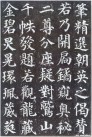 筆精選朝英
若乃開扃鐍窺奧秘
二尊分座疑對鷲山
千帙發題若觀龍藏
金碧炅晃環珮葳蕤